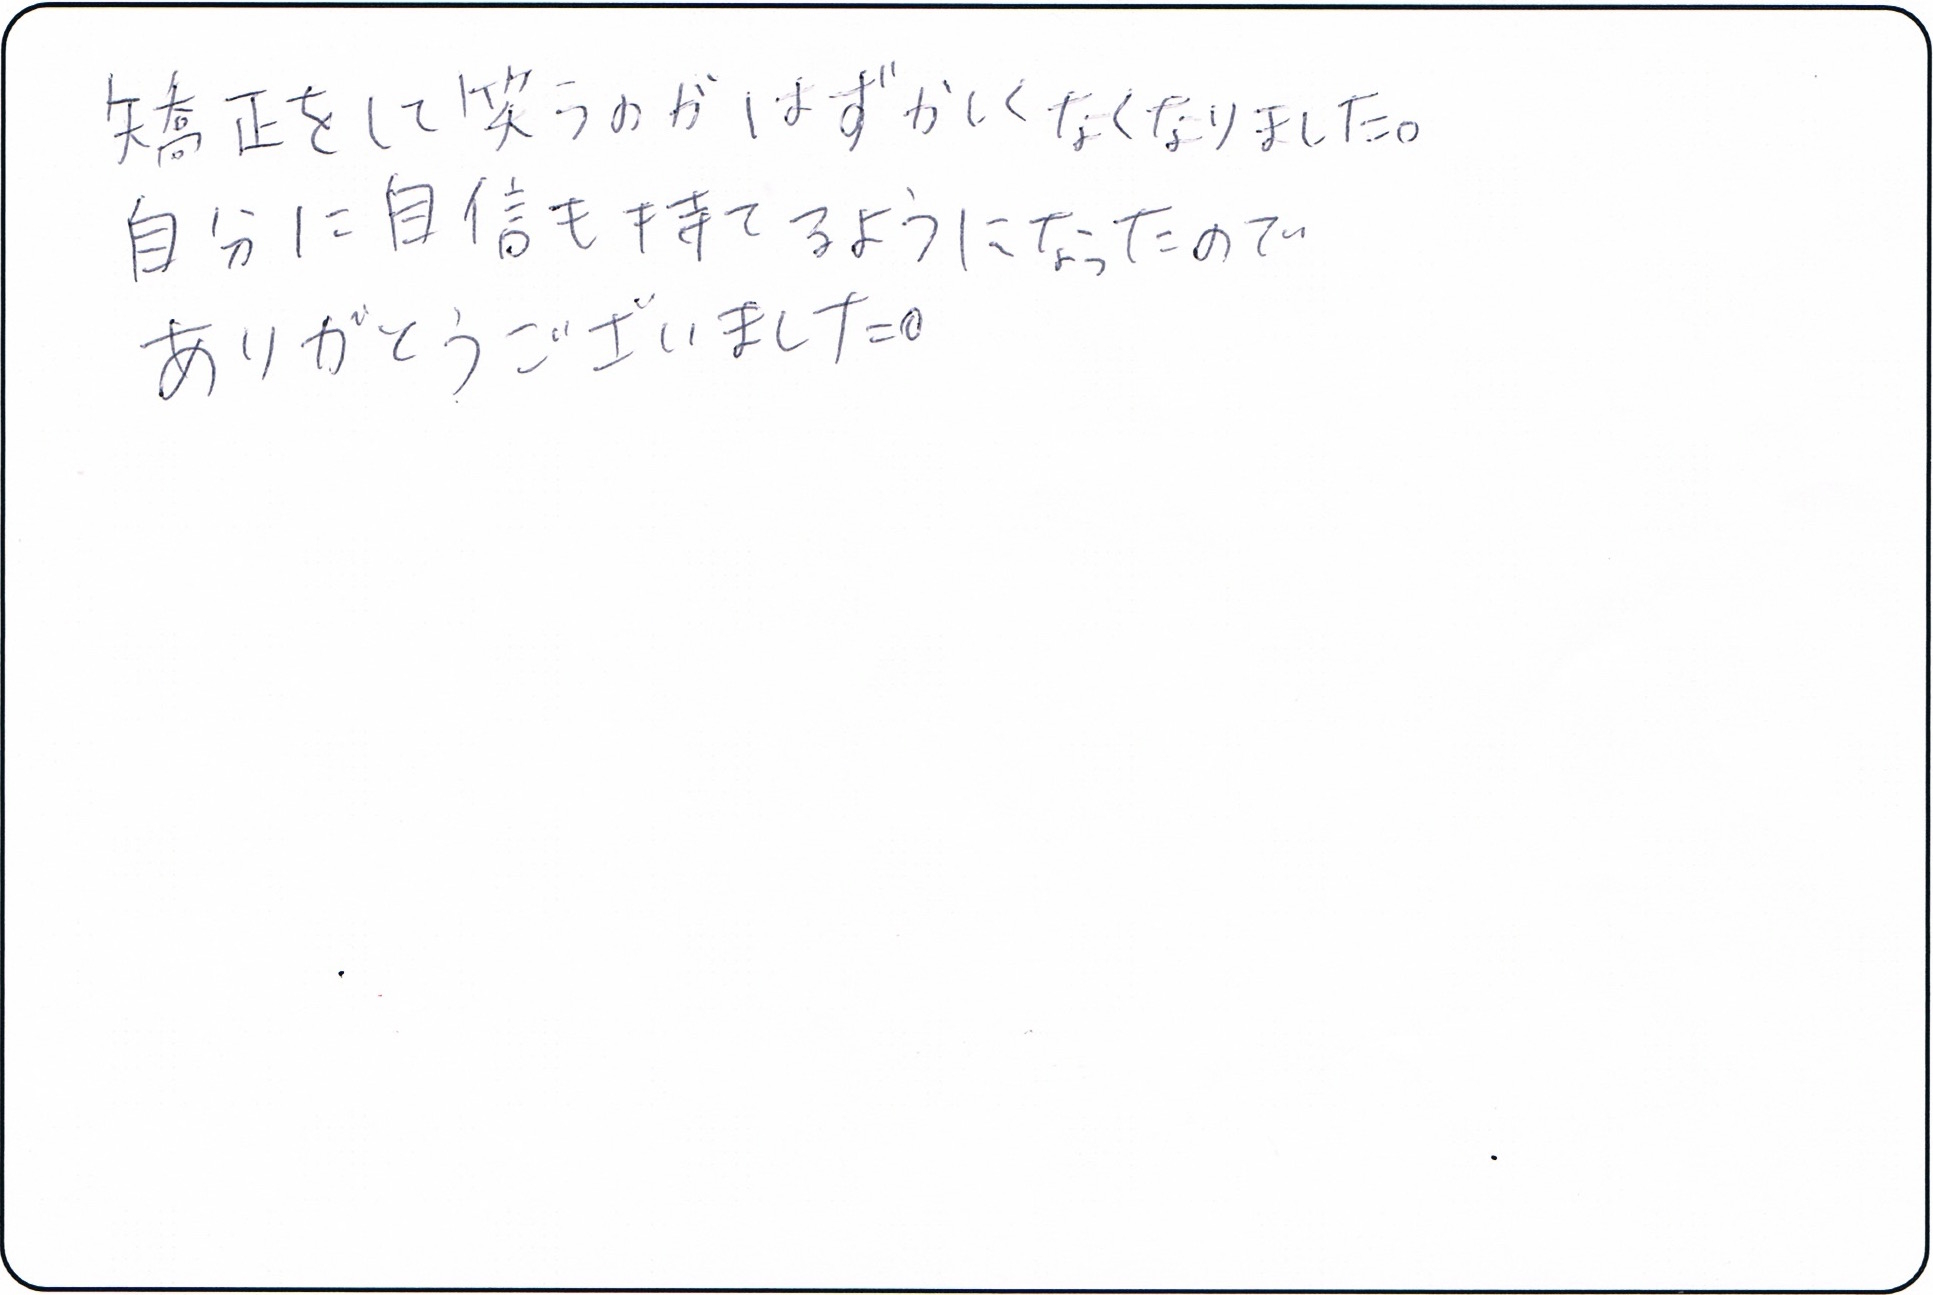 矯正をして笑うのがはずかしくなくなりました。
自分に自信も持てるようになったので
ありがとうございました。